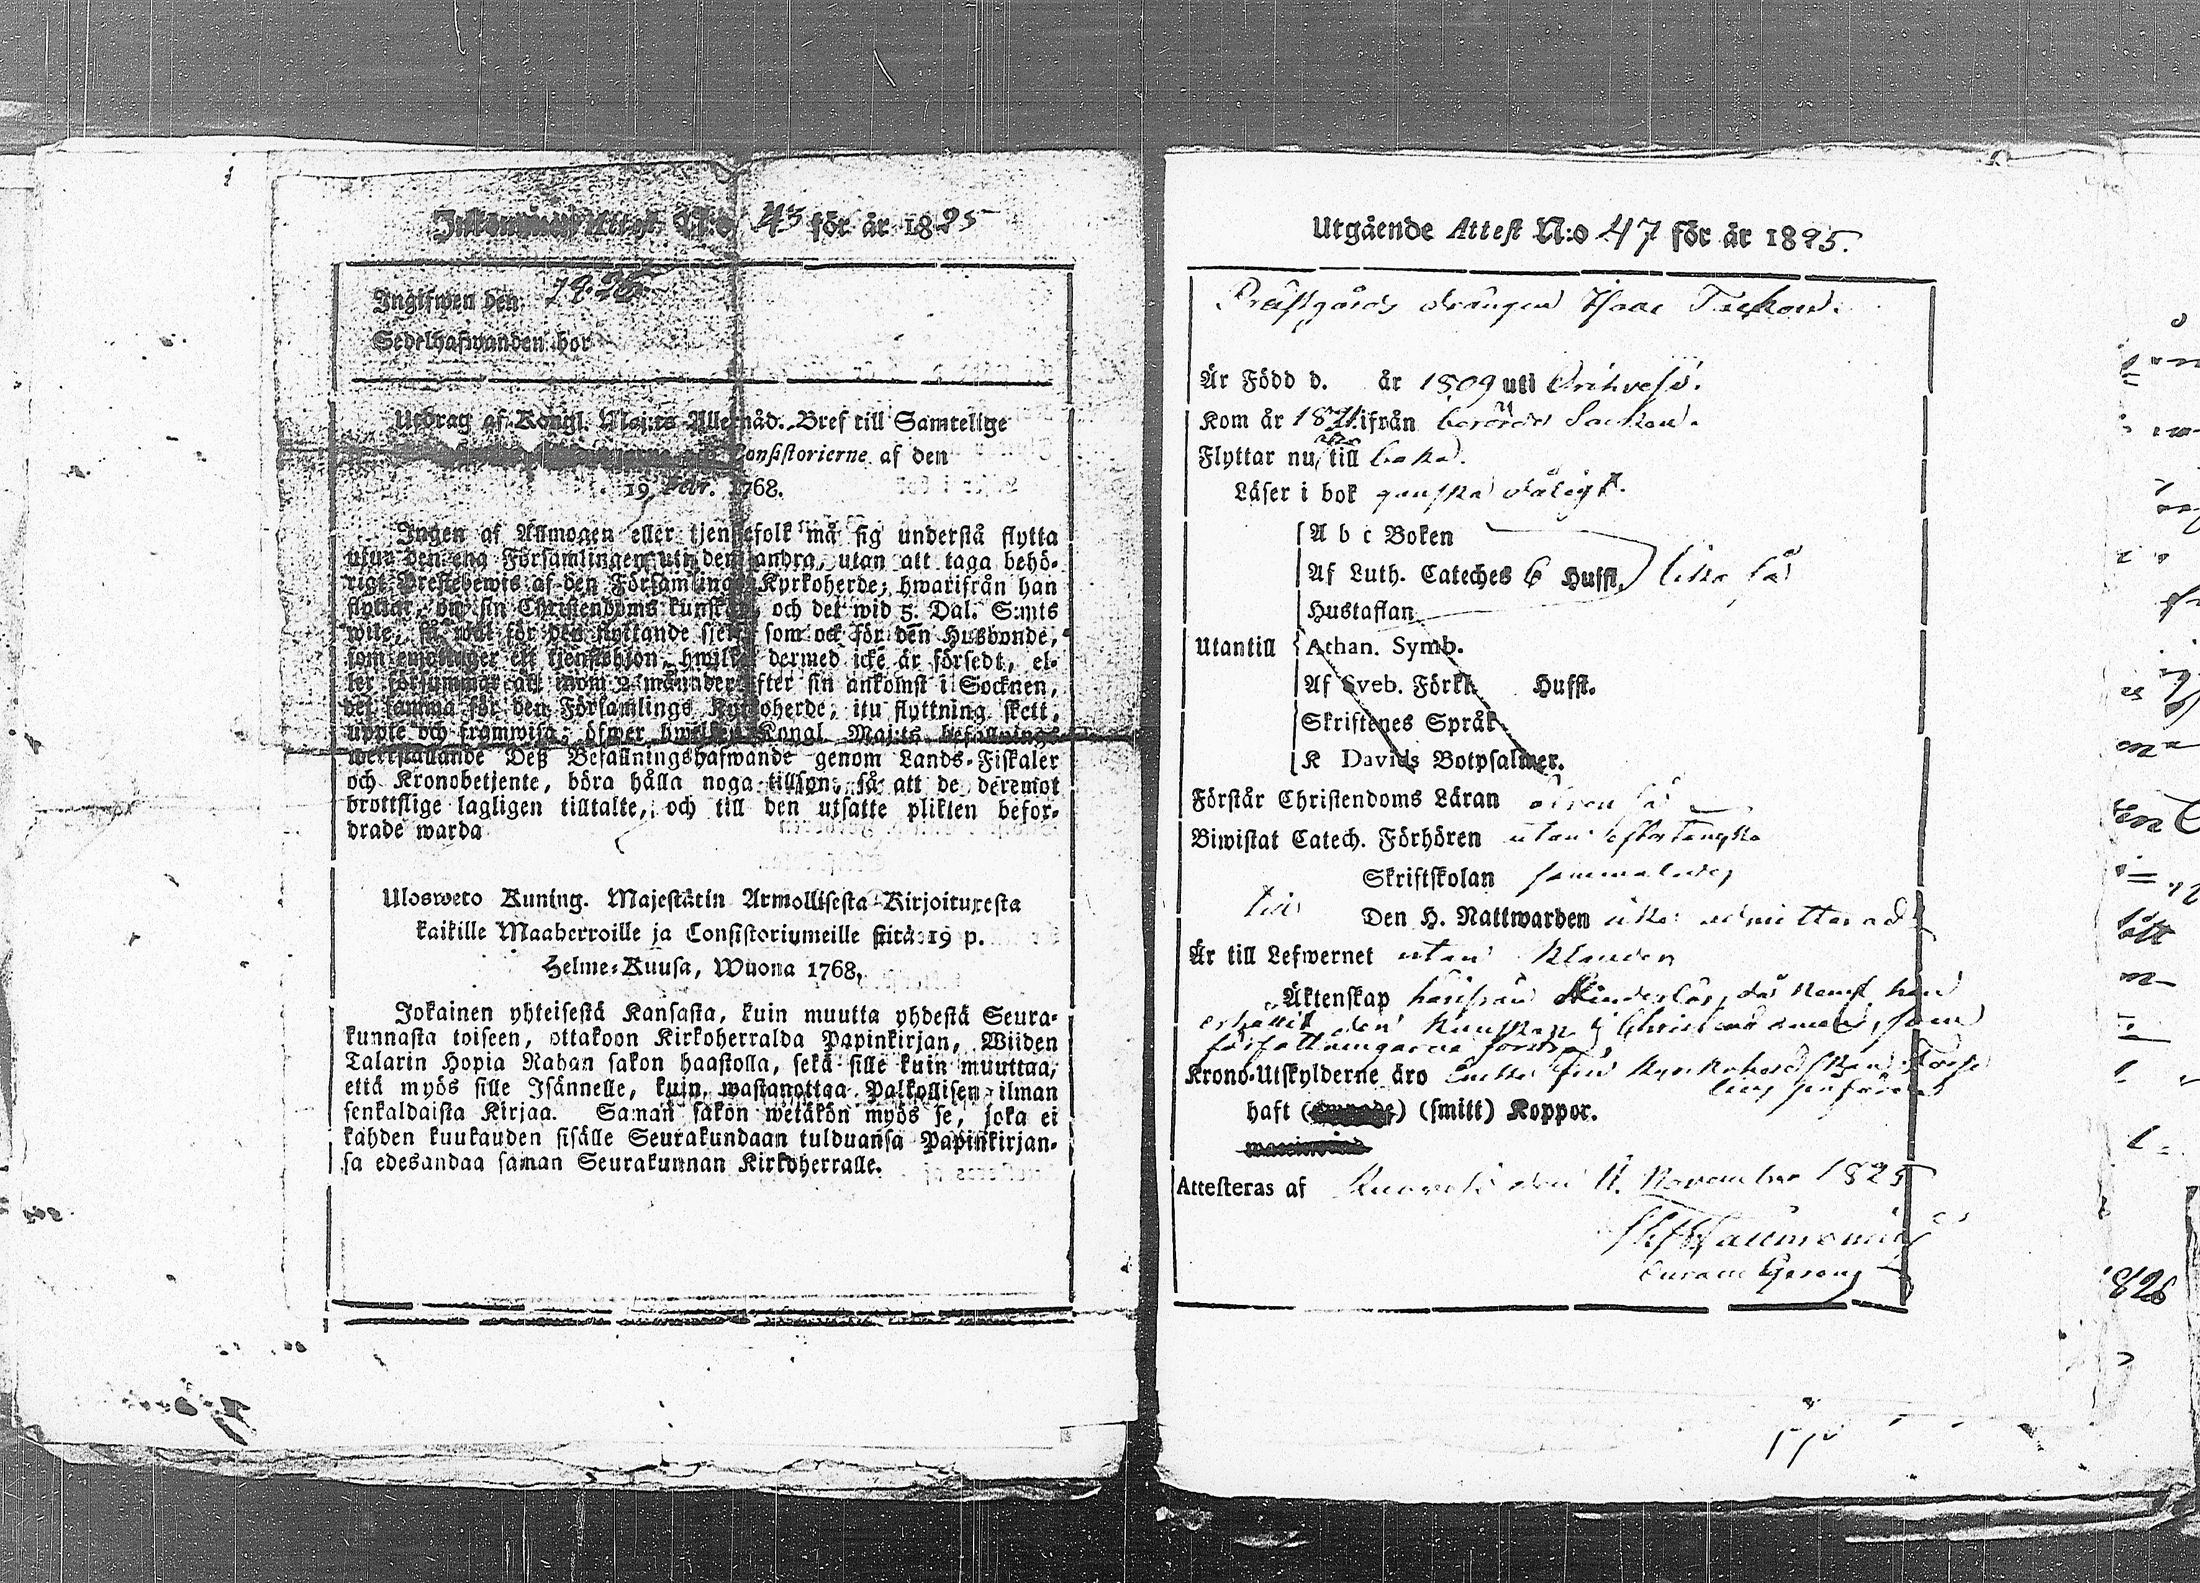 Inkommen Attest N:o 43 för år 1825
Ingifwen den 1825
Sedelhafwanden bor
Utdrag af Kongl. Maj:ts Allernåd. Bref till Samtelige
Consistorierne af den
19 Febr. 1768.
Ingen af Allmogen eller tjenstefolk må sig understå flytta
utur den ena Församlingen uti den andra, utan att taga behö-
rigt Prestebewis af den Församlings Kyrkoherde, hwarifrån han
flyttar, om sin Christendoms kunskap, och det wid 5. Dal. S:mts
wite, så wäl för den flyttande sjelf som ock för den Husbonde,
som emottager ett tjenstehjon, hwilket dermed icke är försedt, el-
ler försummar att inom 2 månader efter sin ankomst i Socknen,
det samma för den Församlings Kyrkoherde, itu flyttning skett,
uppte och framwisa; öfwer hwilken Kongl. Maj:ts befallnings
werkställande Deß Befallningshafwande genom Lands-Fiskaler
och Kronobetjente, böra hålla noga tillsyn, så att de deremot
brottslige lagligen tilltalte, och till den utsatte plikten befor-
drade warda
Ulosweto Kuning. Majestätin Armollisesta Kirjoituxesta
kaikille Maaherroille ja Consistoriumeille siitä 19 p.
Helme-Kuusa, Wuona 1768.
Jokainen yhteisestä Kansasta, kuin muutta yhdestä Seura-
kunnasta toiseen, ottakoon Kirkoherralda Papinkirjan, Wiiden
Talarin Hopia Rahan sakon haastolla, sekä sille kuin muuttaa,
että myös sille Isännelle, kuin wastanottaa Palkollisen ilman
senkaldaista Kirjaa. Saman sakon wetäkön myös se, joka ei
kahden kuukauden sisälle Seurakundaan tulduansa Papinkirjan-
sa edesandaa saman Seurakunnan Kirkoherralle.
Utgående Attest N:o 47 för år 1825.
Prästgårds drängen Isaac
Är Född d. år 1809 uti Orihvesi.
Kom år 1821 ifrån berörde Socken.
Flyttar nu åter till baka.
Läser i bok ganska dåligt.
A b c Boken
Af Luth. Cateches 6 Huffst. lika så
Hustaflan
Utantill Athan. Symb.
Af Sveb. Förkl. Huffst.
Skriftenes Språk
K Davids Botpsalmer.
Förstår Christendoms Läran även så
Biwistat Catech. Förhören utan eftertanka
Skriftskolan sammaledes
till Den H. Nattwarden icke admitterad
Är till Lefwernet utan klander
Äktenskap härifrån hinderlös, då han
erhållit den kunskap i Christendomen, som
författningarne fordra
Krono-Utskylderne äro
haft (smitt) Koppor.
Attesteras af den 11. November 1825